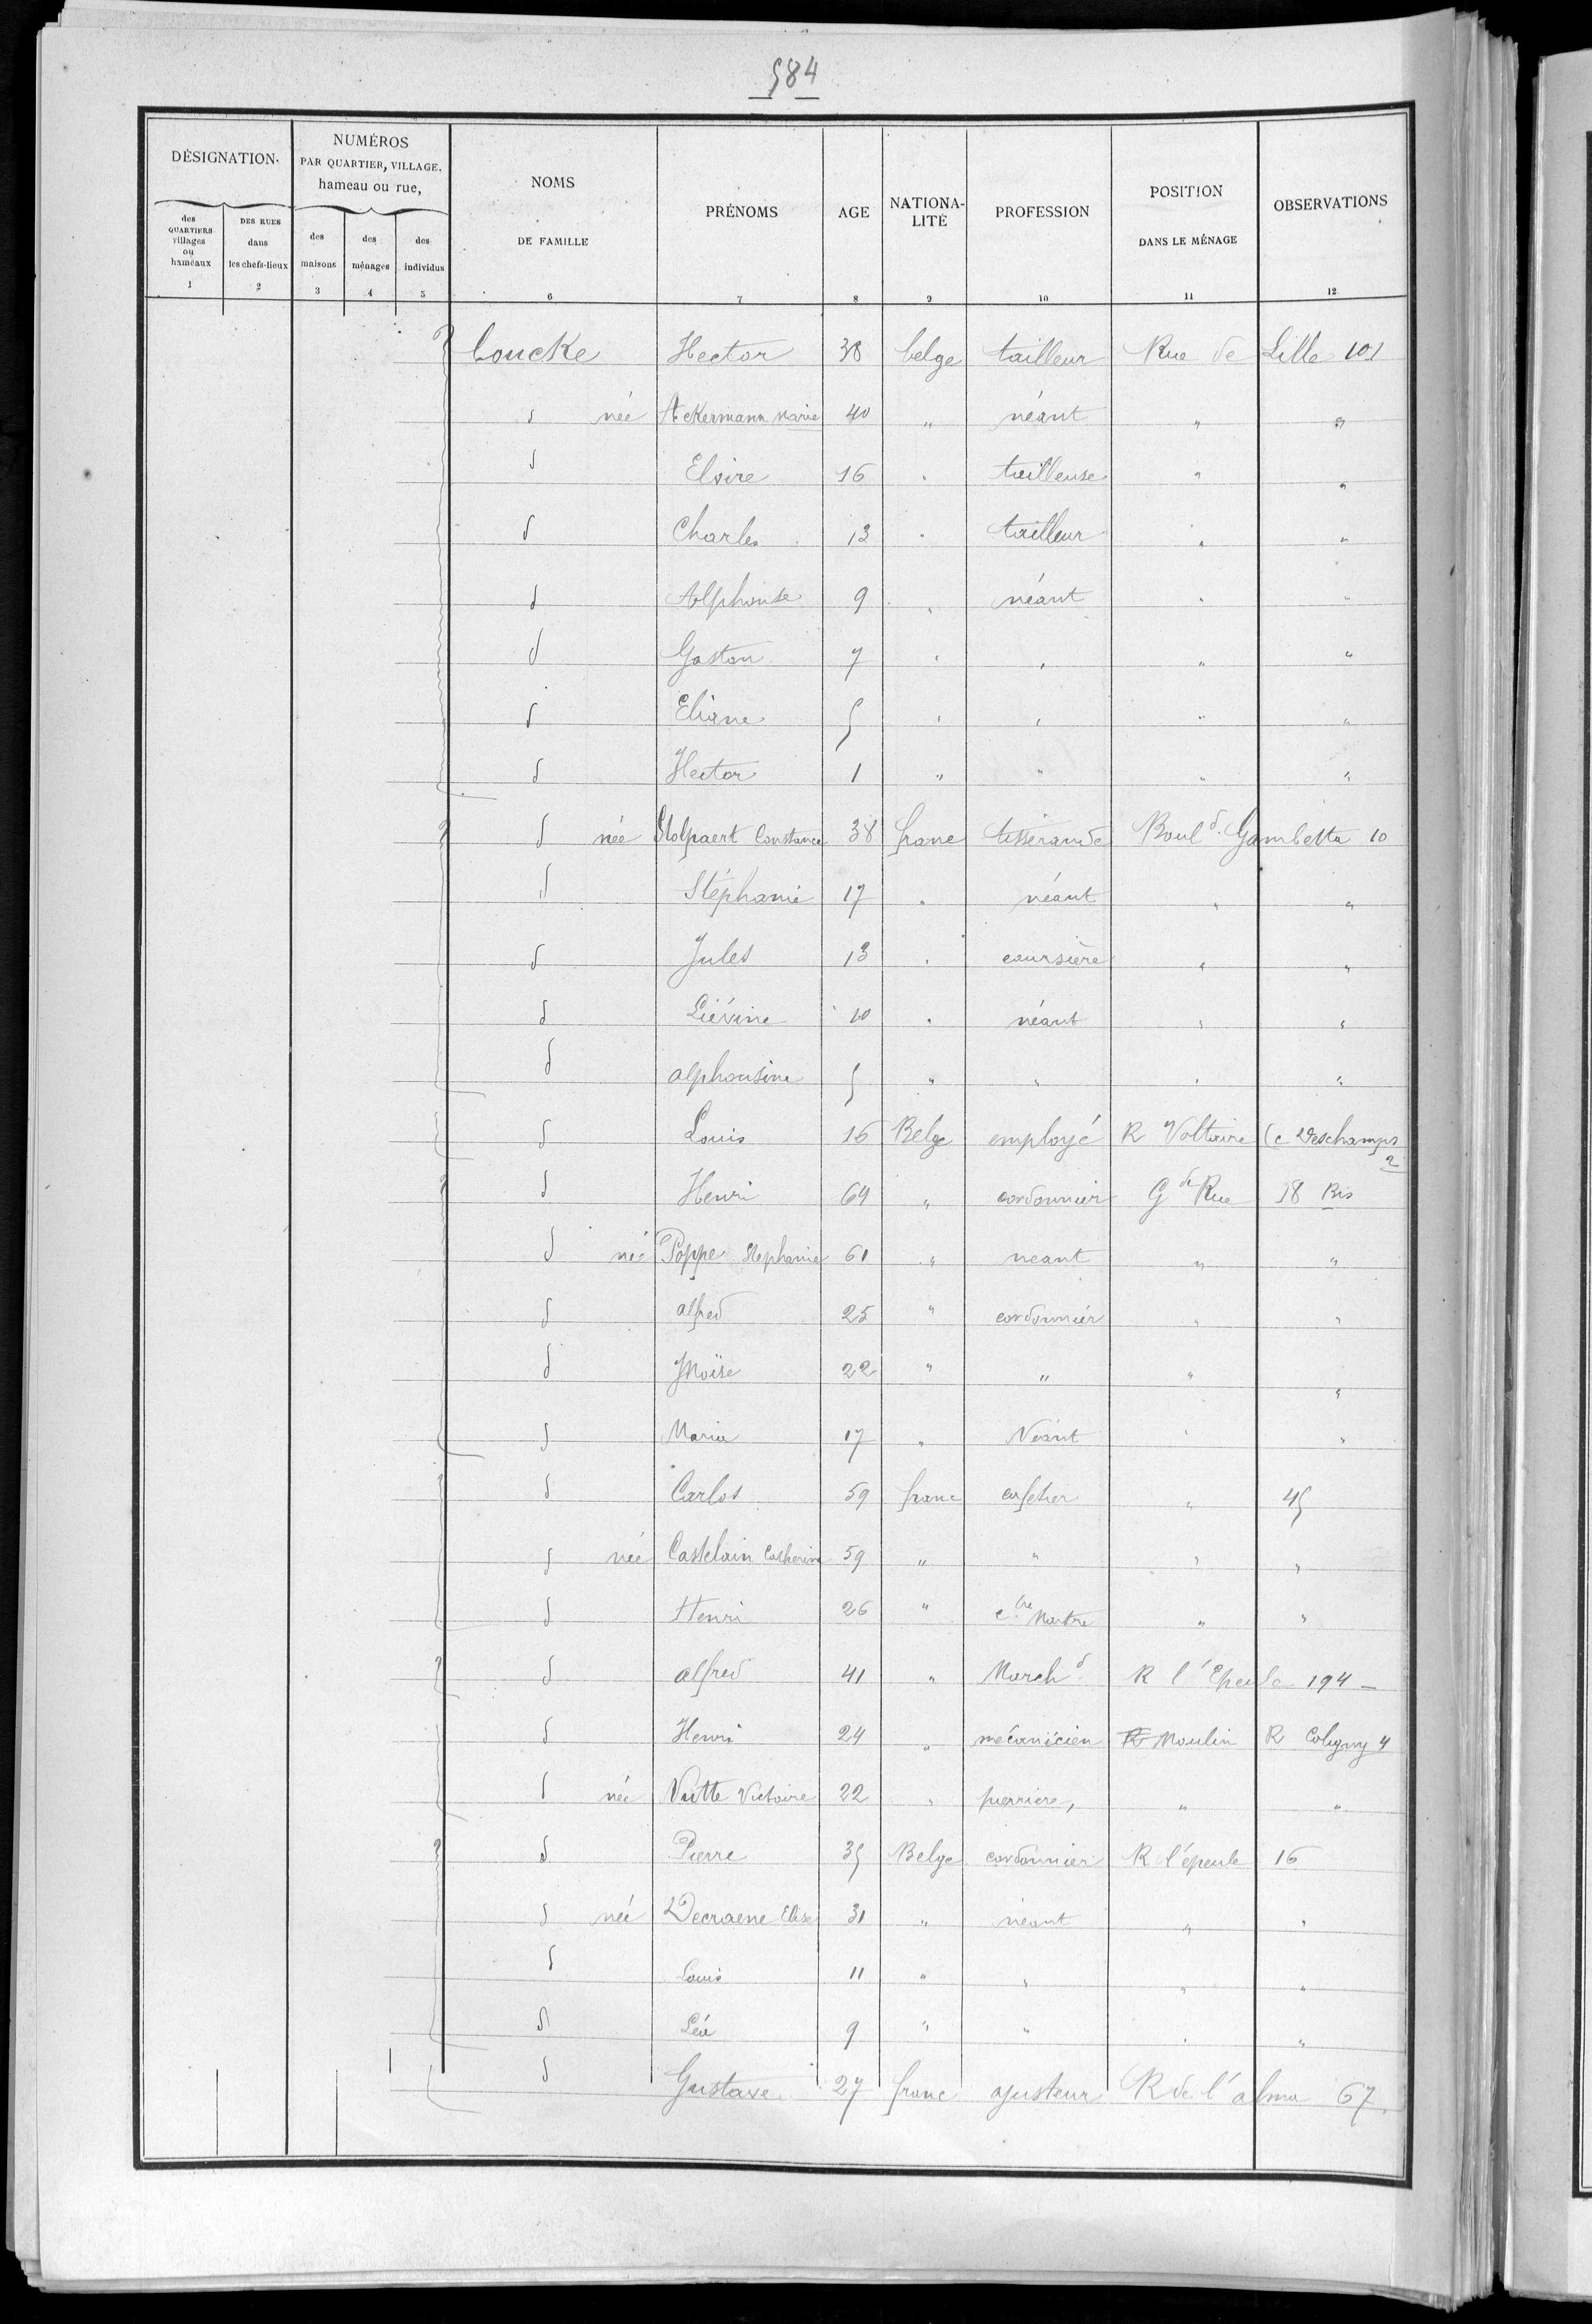 584
DÉSIGNATION.
NUMÉROS
PAR QUARTIER, VILLAGE,
hameau ou rue,
NOMS
DE FAMILLE
PRÉNOMS
AGE
NATIONA-
LITÉ
PROFESSION
POSITION
DANS LE MÉNAGE
OBSERVATIONS
des
QUARTIERS
villages
ou
hameaux
DES RUES
dans
les chefs-lieux
des
maisons
des
ménages
des
individus
1 2 3 4 5 6 7 8 9 10 11 12
Coucke Hector 38 belge tailleur Rue de Lille 101
d née Ackermann Marie 40 " néant " "
d Elvire 16 " tailleuse " "
d Charles 13 " tailleur " "
d Alphonse 9 " néant " "
d Gaston 7 " " " "
d Eliane 5 " " " "
d Hector 1 " " " "
d née Stolpaert Constance 38 franc tisserande Boul d. Gambetta 10
d Stéphanie 17 " néant " "
d Jules 13 " coursière " "
d Liévine 10 " néant " "
d alphonsine 5 " " " "
d Louis 16 Belge employé R Voltaire (c Deschamps
2
d Henri 69 " cordonnier G de Rue 18 Bis
d née Poppe Stephanie 61 " neant " "
d alfred 25 " cordonnier " "
d Moïse 22 " " " "
d Maria 17 " Néant " "
d Carlos 59 franc cafetier " 45
d née Castelain Catherine 59 " " " "
d Henri 26 " c tre Maitre " "
d alfred 41 " March d R l'Epeule 194 —
d Henri 24 " mécanicien R Moulin R Coligny 4
d née Vutte Victoire 22 " " "
d Pierre 35 Belge cordonnier R l'épeule 16
d née Decraene Elise 31 " néant " "
d Louis 11 " " " "
d Léa 9 " " " "
d Gustave 27 franc ajusteur R de l'alma 67